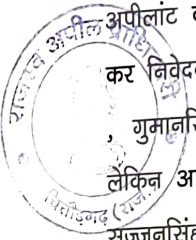 अपीलांट
कर निवेदन
, गुमानसिं
लेकिन अ
सज्जनसिंह
राजस्व अपील प्राधि
चित्तौड़गढ़ (राज.